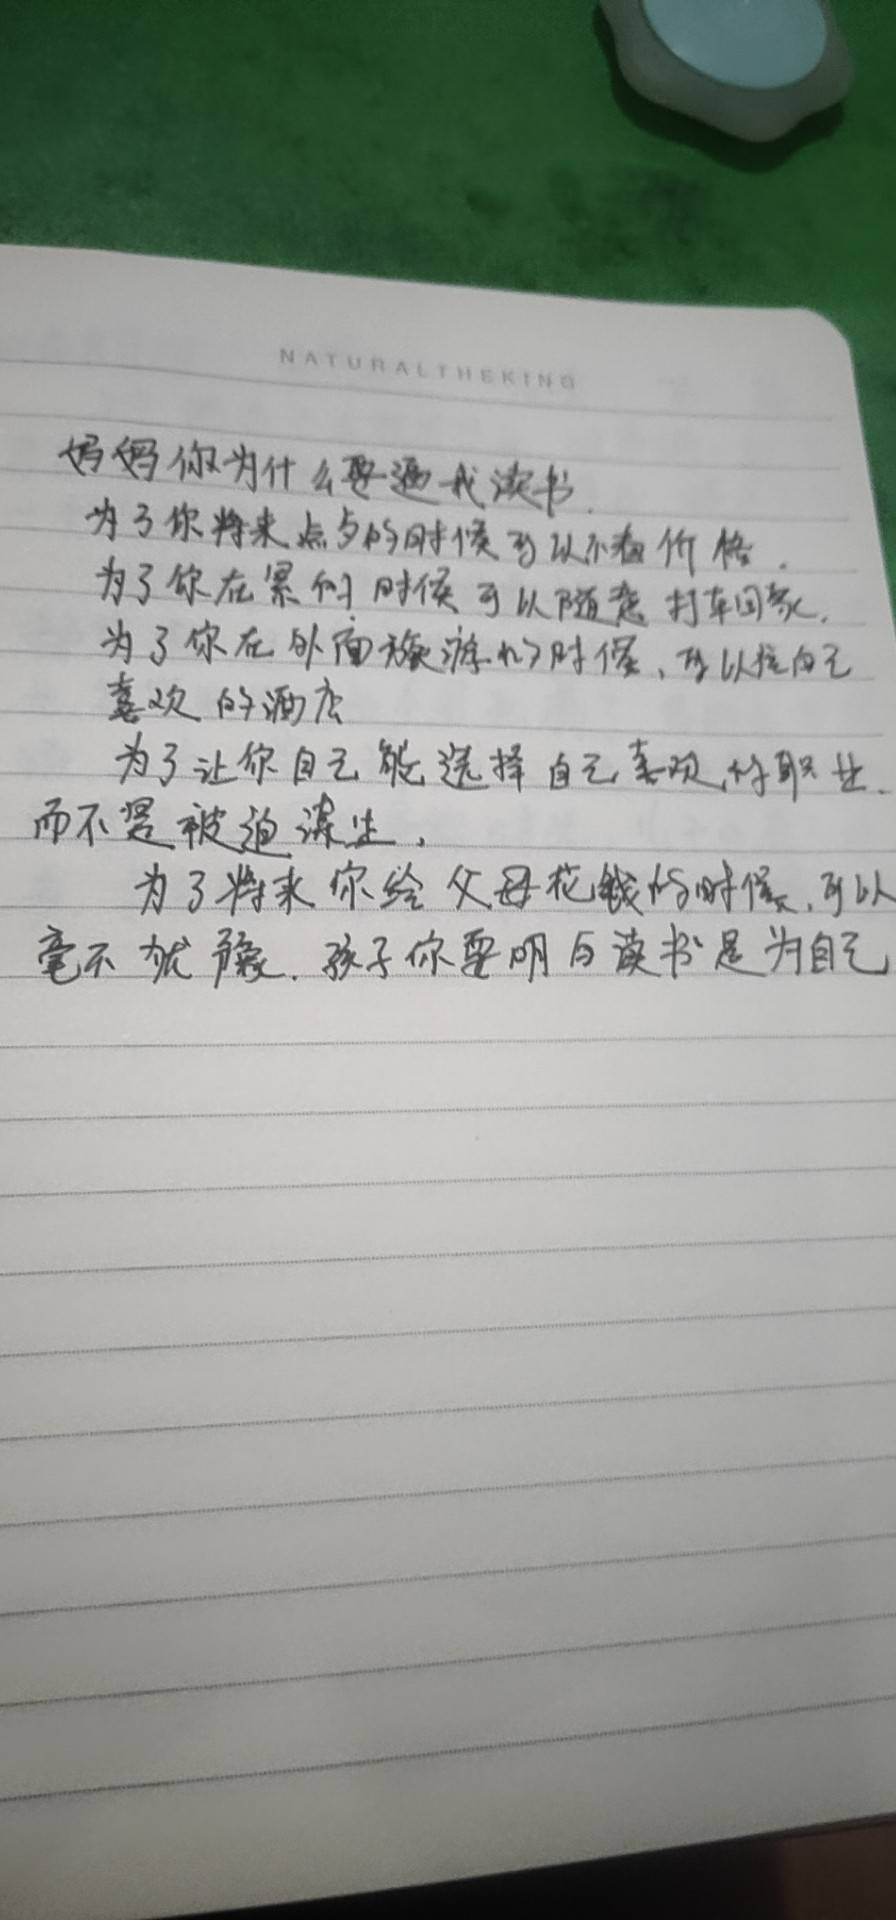 NATURALTHEKING
妈妈你为什么要逼我读书.
为了你将来点的时候可以不看价格.
为了你在累的时候可以随意打车回家.
为了你在外面旅游的时候、可以住自己
喜欢的酒店
为了让你自己能选择自己喜欢的职业.
而不是被迫谋生.
为了将来你给父母花钱的时候.可以
毫不犹豫.孩子你要明白读书是为自己